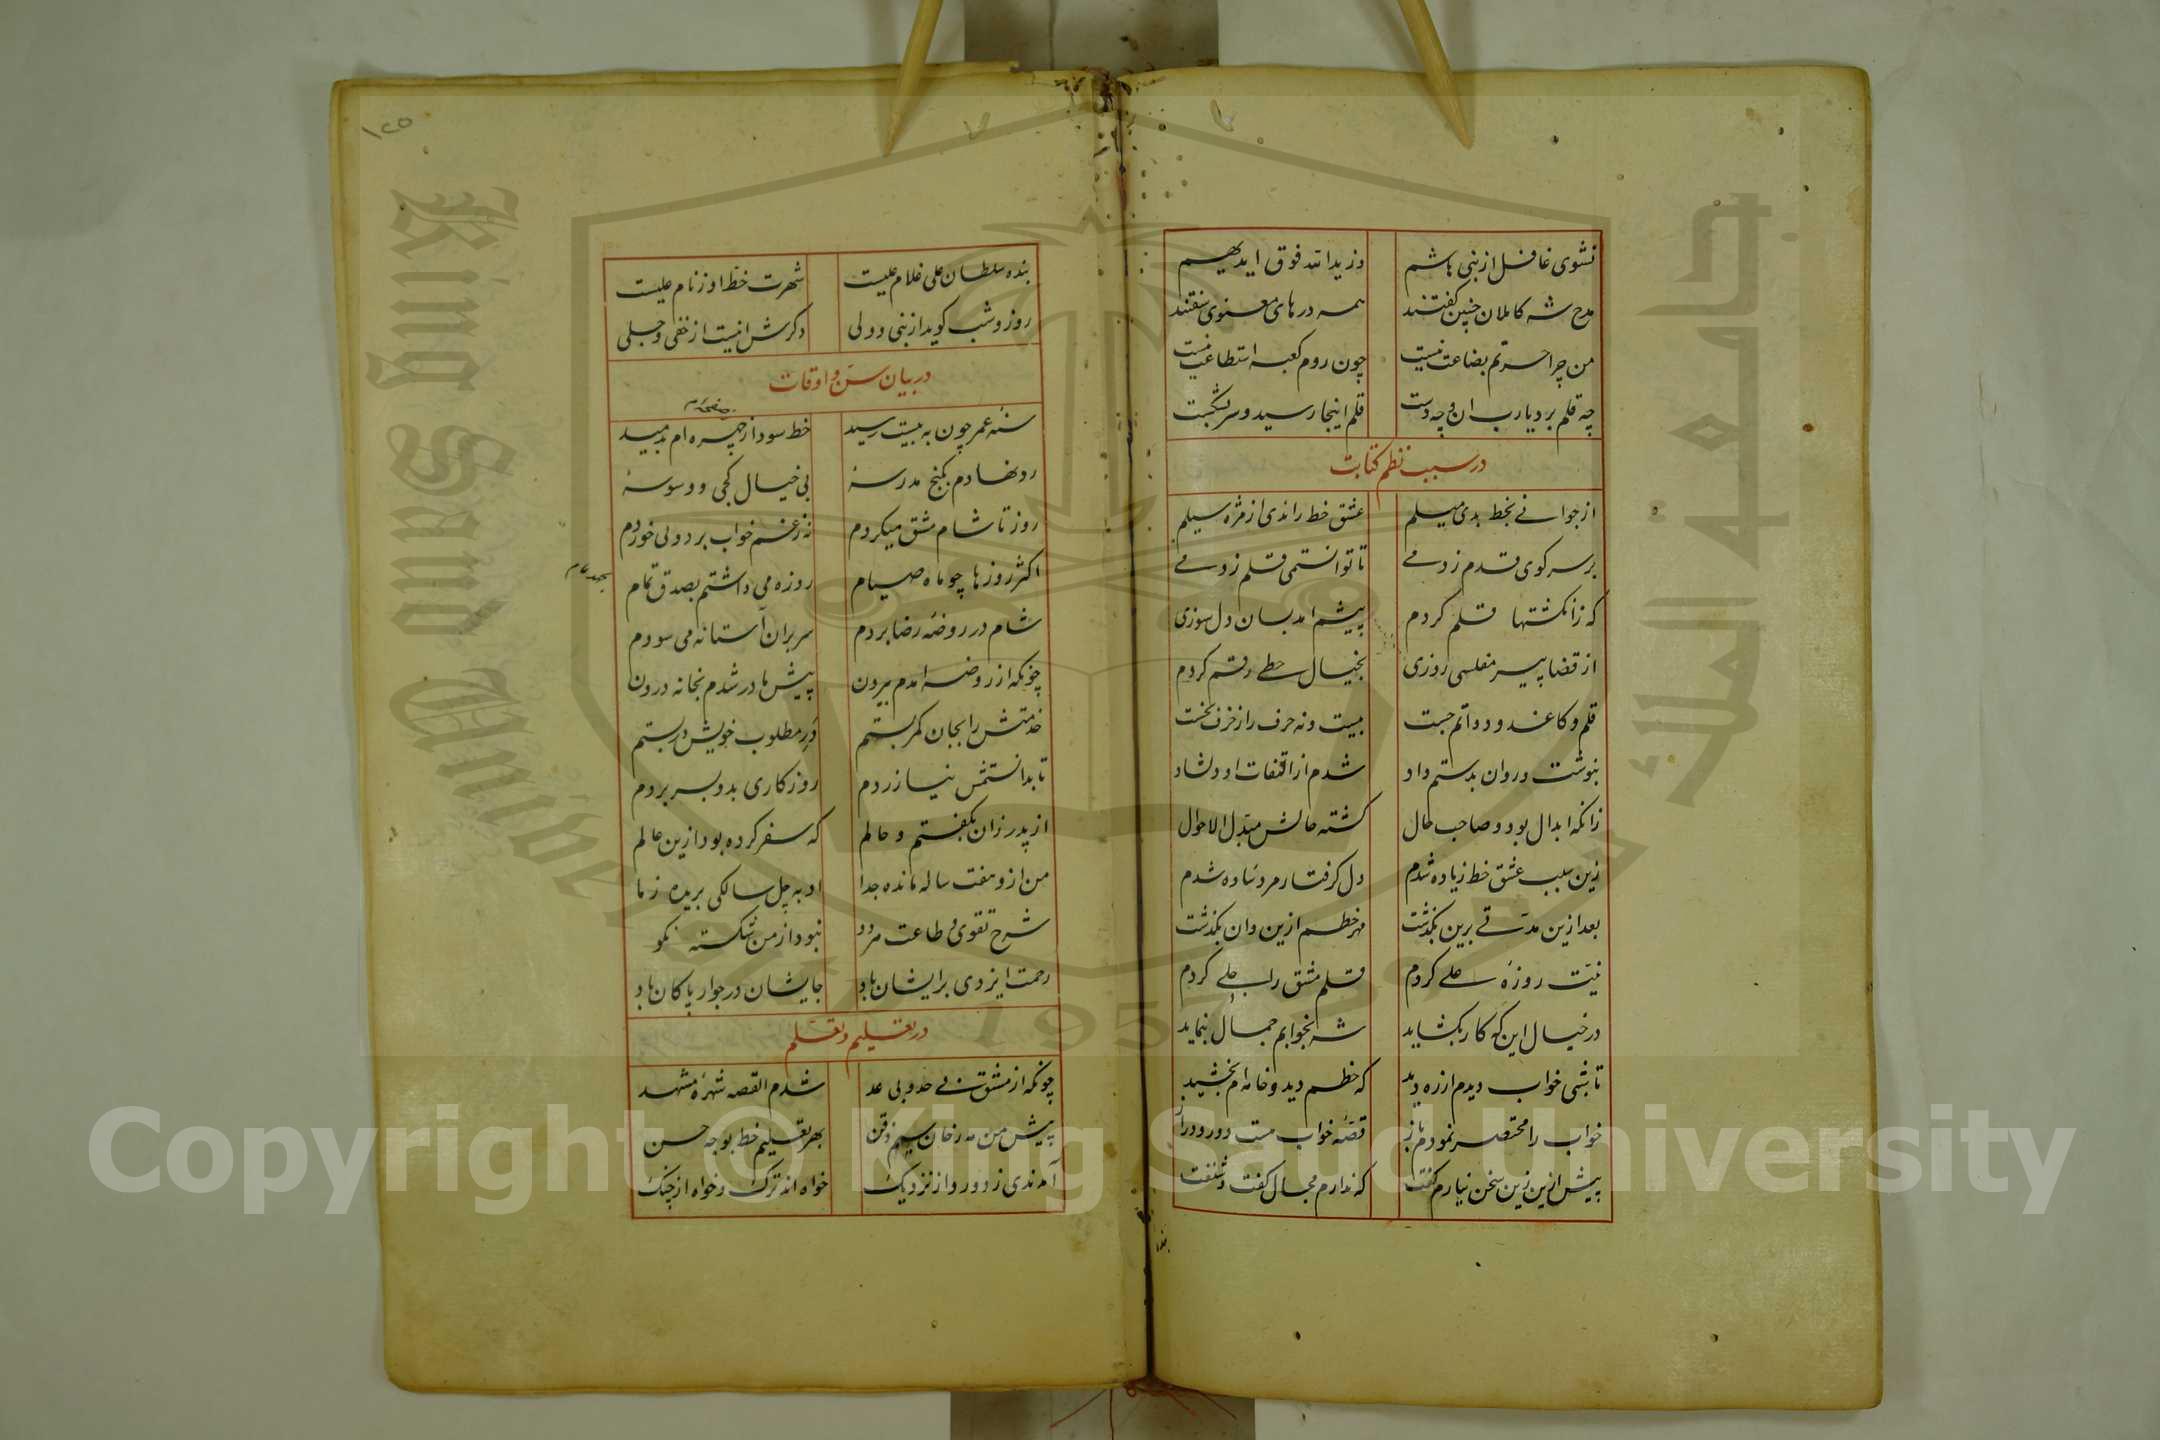 نشوی غافل از بنی هاشم وز یدالله فوق ایدیهم
مدح شه کاملان چنین گفتند همه درهای معنوی سفتند
من چرا حسرتم بضاعت نیست چون روم کعبه استطاعت نیست
چه قلم بود یارب ان و چه دست قلم اینجا رسید و سر بشکست
در سبب نظم کتابت
از جوانی بخط بدی میلم عشق خط راندی از مژه سیلم
بر سر کوی قدم زدمی تا توانستمی قلم زدمی
که زانکشتها قلم کردم پیشم امد بسان دل سوزی
از قضا پیر مفلسی روزی بخیال خطی رقم کردم
قلم و کاغذ و دواتم جست بیست و نه حرف را ز خرف نخست
بنوشت و روان بدستم داد شدم از التفات او دلشاد
زانکه ابدال بود و صاحب حال کشته حالش مبدل الاحوال
زین سبب عشق خط زیاده شدم دل کرفتار مرد ساده شدم
بعد ازین مدتی برین بگذشت مهر خطم ازین وان بگذشت
نیت روزهٔ علی کردم قلم مشق را جلی کردم
در خیال این که کار بکشاید شه بخوابم جمال بنماید
تا شبی خواب دیدم از ره دید که خطم دید و خامه ام بخشید
خواب را مختصر نمودم باز قصهٔ خواب هست دور و دراز
پیش ازین زین سخن نیارم گفت که ندارم مجال گفت و شنفت
۱۲۵
بنده سلطان علی غلام علیست شهرت خط او ز نام علیست
روز و شب کوید از نبی و ولی ذکرش اینست از خفی و جلی
در بیان سن و اوقات
سنهٔ عمر چون به بیست رسید خط سودا ز چهره ام بدمید
رو نهادم بکنج مدرسهٔ بی خیال کجی و وسوسهٔ
روز تا شام مشق میکردم نه ز غم خواب بردو لی خوردم
اکثر روزها چو ماه صیام روزه می داشتم بصدق تمام
شام در روضهٔ رضا بردم سر بران آستانه می سودم
چونکه از روضه امدم بیرون پیش مادر شدم بخانه درون
خدمتش را بجان کمر بستم در مطلوب خویش در بستم
تا بدانستمش نیازردم روزکاری بدو بسر بردم
از پدر زان نگفتم و حالم که سفر کرده بود ازین عالم
من ازو هفت ساله مانده جدا او به چل سالکی بریده ز ما
شرح تقوی و طاعت هر دو نبود از من شکسته نکو
رحمت ایزدی برایشان باد جایشان در جوار پاکان باد
در تعلیم و تعلم
چونکه از مشق بی حد و بی عد شدم القصه شهرهٔ مشهد
پیش من مه رخان سیم ذقن بهر تعلیم خط بوجه حسن
آمدندی ز دور و از نزدیک خواه اند ترک و خواه از چنک
King Saud Unive
جامعة الملك سعود
195
Copyright © King Saud University